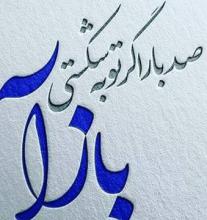 صد بار اگر توبه شکستی
باز آ